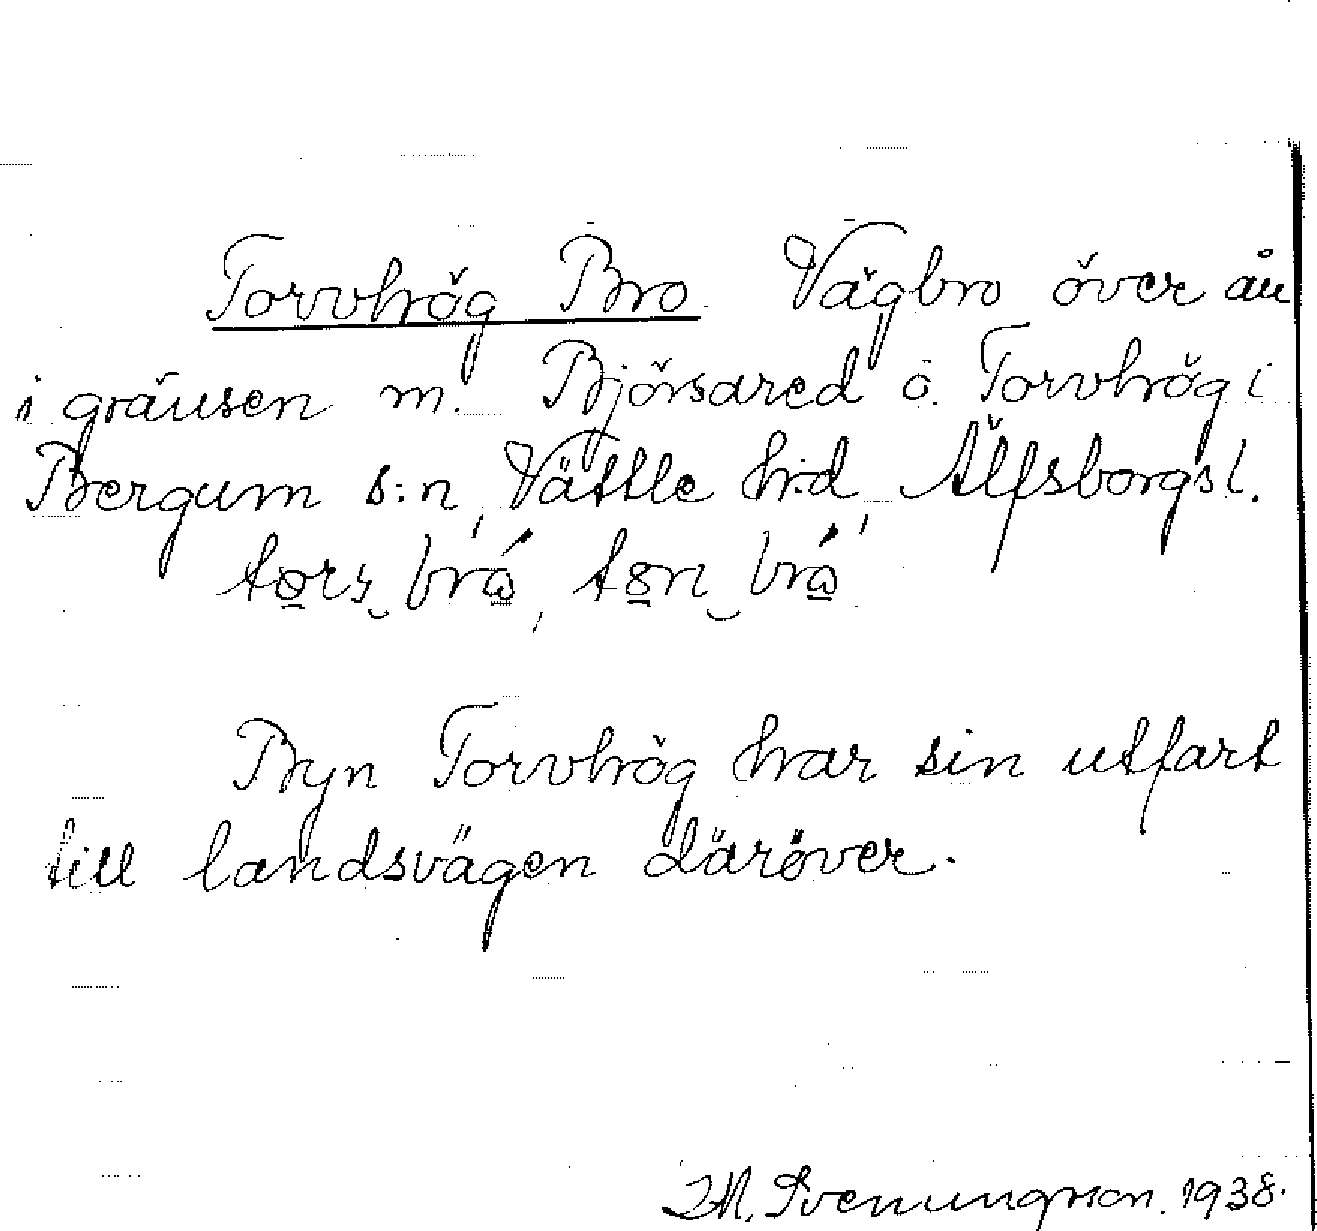 Torvhög Bro Vägbro över ån
i gränsen m. Björsared o. Torvhög i
Bergum s:n, Vättle h:d, Älfsborgs l.
Byn Torvhög har sin utfart
till landsvägen däröver.
Svenungson. 1938.